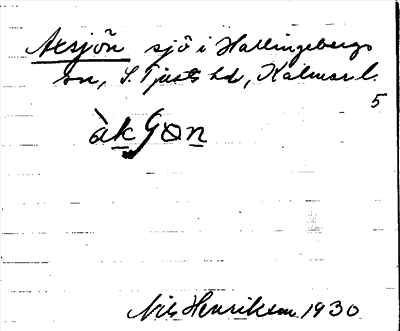 Axsjön sjö i Hallingebergs
sn, S. Tjusts hd, Kalmar l.
5
àkʃøn
Nils Henriksson 1930